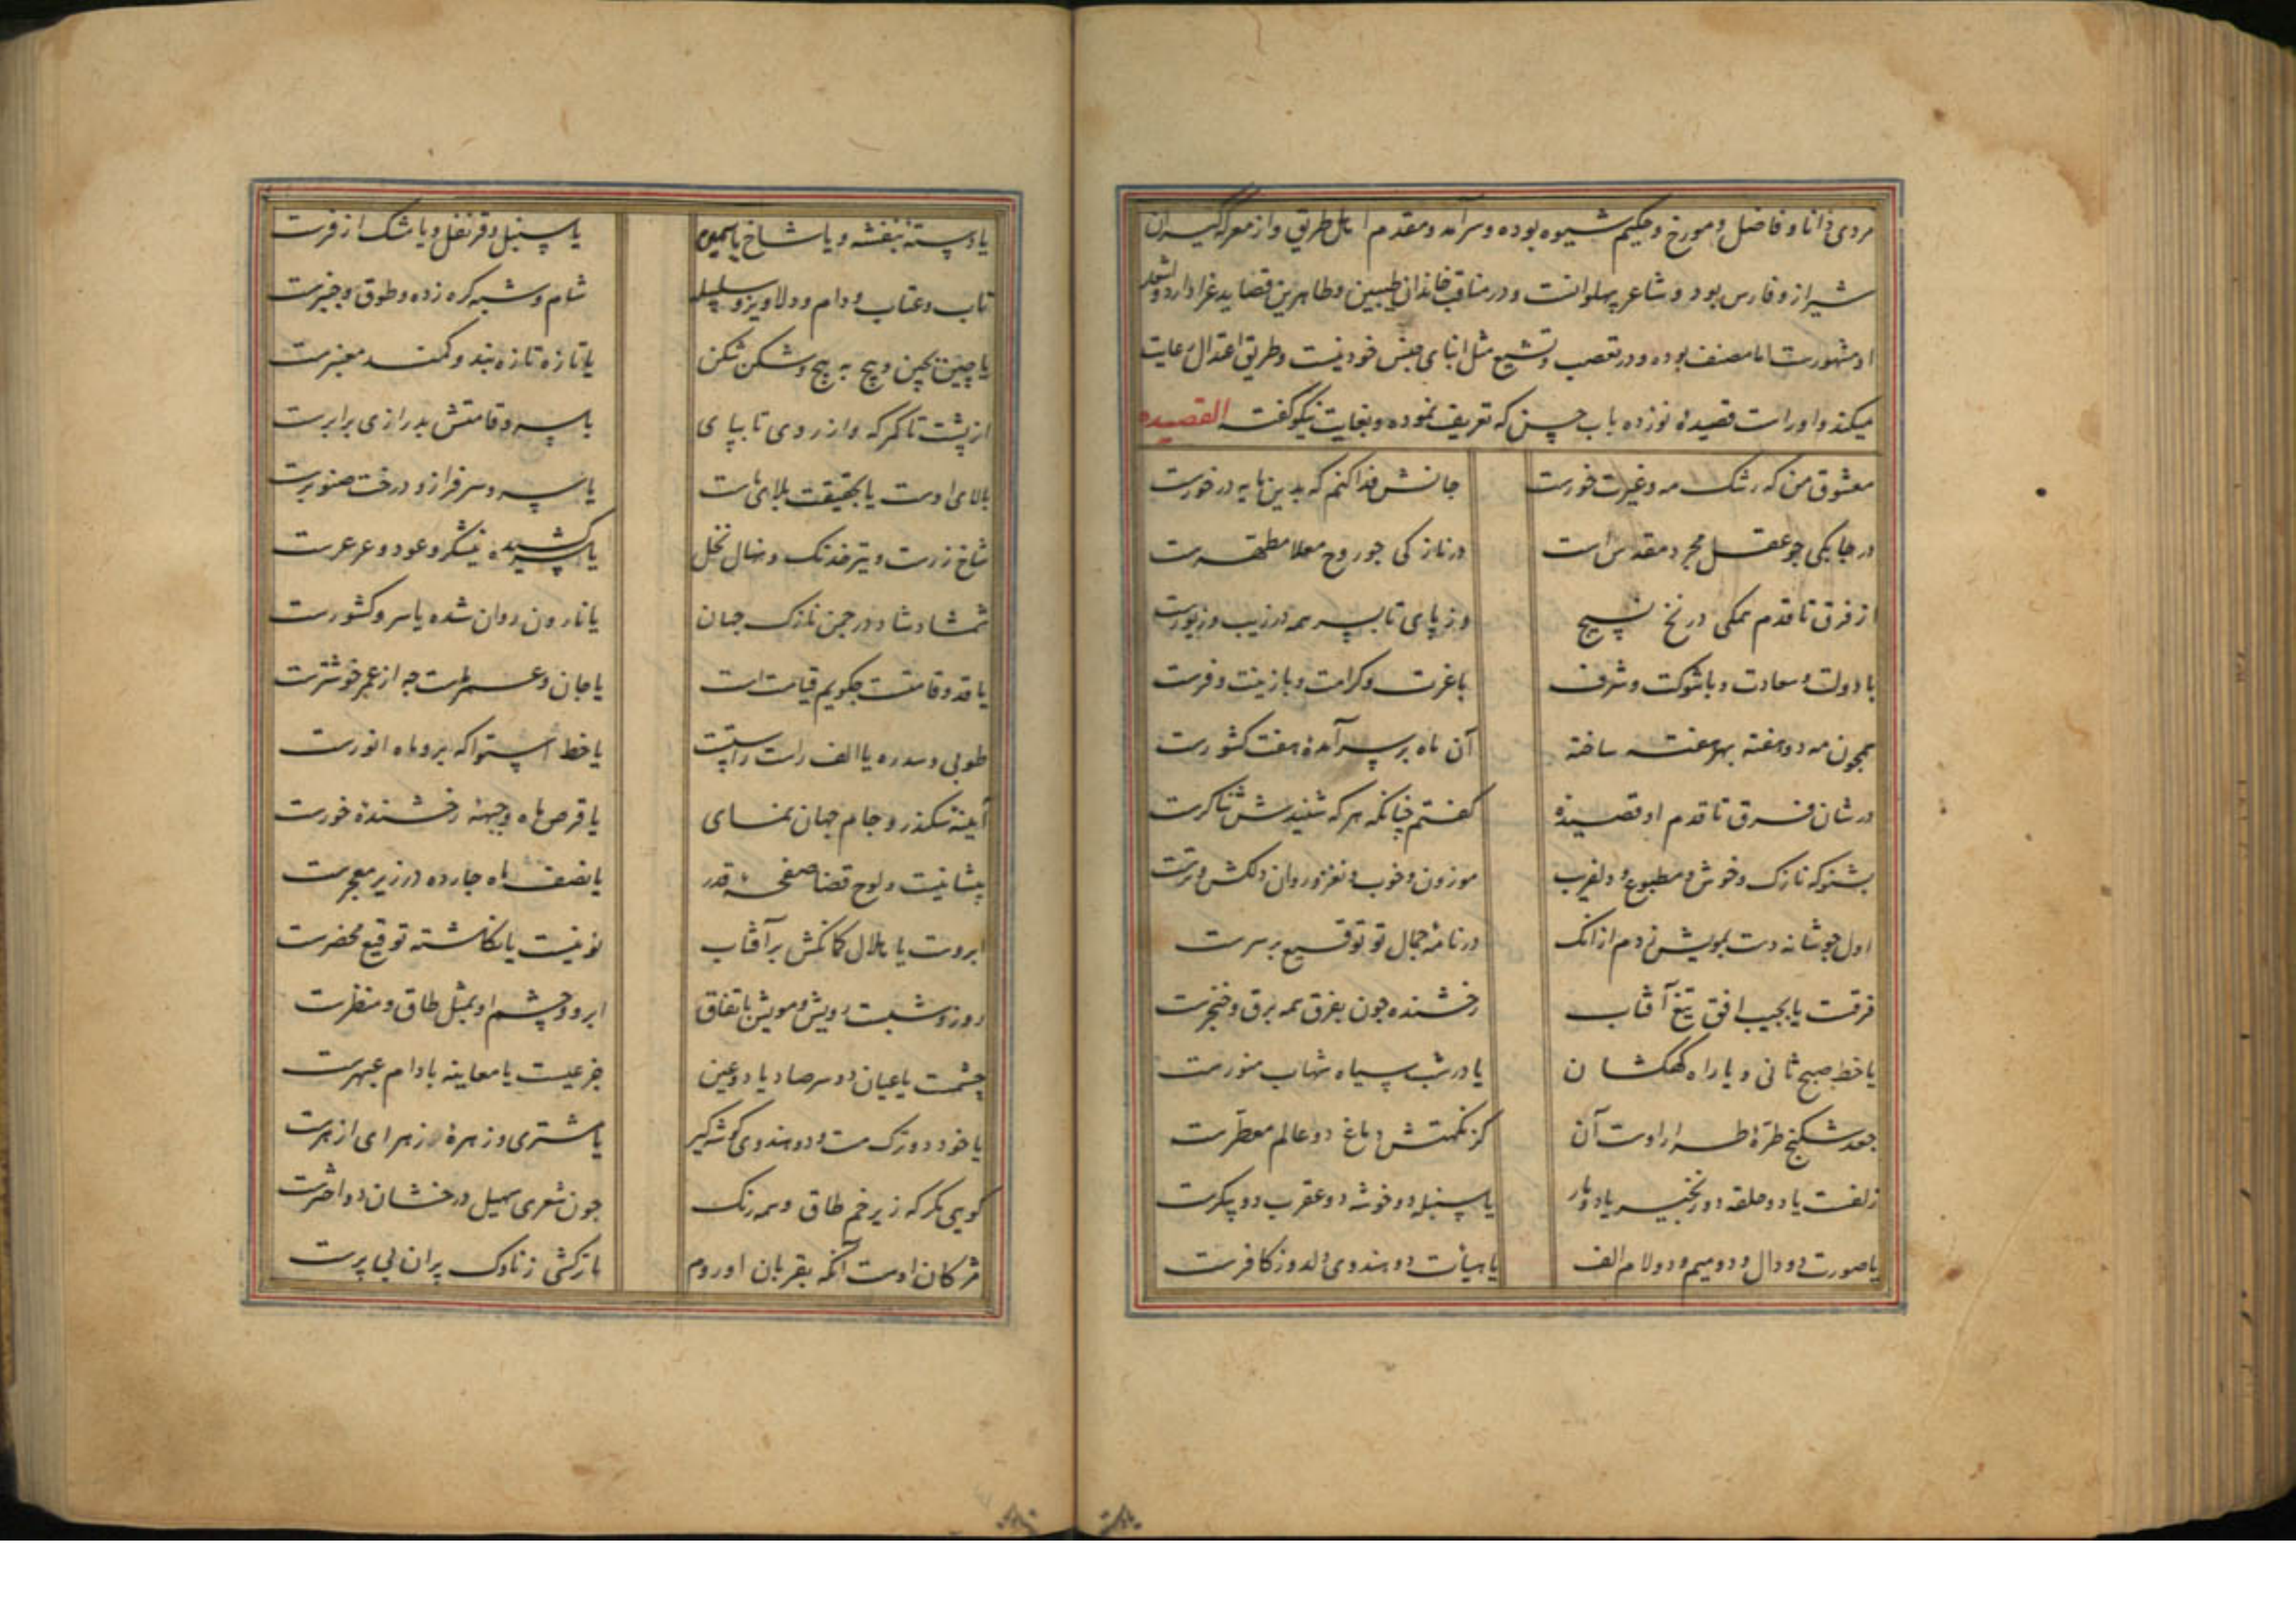 مردی دانا و فاضل و مورخ و حکیم شیوه بوده و سرآمد و مقدم اهل طریق و از معرکه گیران
شیراز و فارس بود و شاعر پهلوانست و در مناقب خاندان طیبین و طاهرین قصاید غرا دارد و اشعار
او مشهورست اما منصف بوده و در تعصب و تشیع مثل ابنای جنس خود نیست و طریق اعتدال رعایت
میکند و اوراست قصیده نوزده باب حسن که تعریف نموده و بغایت نیکو گفته القصیده
معشوق من که رشک مه و غیرت خورست جانش فدا کنم که بدین مایه در خورست
در چابکی جو عقل مجرد مقدس است در نازکی جو روح معلا مطهرست
از فرق تا قدم نمکی در نخ نسیج وز پای تا بسر همه در زیب و زیورست
با دولت و سعادت و با شوکت و شرف با عزت و کرامت و با زینت و فرست
همچون مه دو هفته بهر هفته ساخته آن ماه بر سر آمدهٔ هفت کشورست
در شان فرق تا قدم او قصیدهٔ گفتم چنانکه هر که شنیدش ثناگرست
بشنو که نازک و خوش و مطبوع و دلفریب موزون و خوب و نغز و روان دلکش و ترست
اول جو شانه دست بمویش زدم از انک در نامهٔ جمال تو توقیع بر سرست
فرقت یا بجیب افق تیغ آفتاب رخشنده جون بفرق همه برق و خنجرست
یا خط صبح ثانی و یا راه کهکشان یا در شب سیاه شهاب منورست
جعد شکنج طرهٔ طرار اوست آن کز نکهتش دماغ دو عالم معطرست
زلفت یا دو حلقه دو زنجیر یا دو مار یا سنبله دو خوشه دو عقرب دو پیکرست
یا صورت دو دال و دو میم و دو لام الف یا هیأت دو هندوی دلدوز کافرست
یا دسته بنفشه و یا شاخ یاسمین یا سنبل و قرنفل و یا مشک ازفرست
تاب و عتاب و دام و دلاویز و سلسله شام و شبه گره زده و طوق و چنبرست
یا چین بچین و پیچ به پیچ و شکن شکن یا تازه تازه بند و کمند معنبرست
از پشت تا کمرکه و از روی تا بپای با سرو قامتش بدرازی برابرست
بالای اوست یا بحقیقت بلای ماست یا سرو سرفراز و درخت صنوبرست
شاخ زرست و تیر خدنک و نهال نخل یا سر کشیده نیشکر و عود و عرعرست
شمشاد شاد در جمن نازک جهان یا نارون روان شده یا سرو کشورست
یا قد و قامتست جکویم قیامت است یا جان و عمر ماست جه از عمر خوشترست
طوبی و سدره یا الف راست راستست یا خط استوا که برو ماه انورست
آیینهٔ سکندر و جام جهان نمای یا قرص ماه و جبههٔ رخشندهٔ خورست
پیشانیست و لوح قضا صفحه قدر یا نصف ماه جارده در زیر معجرست
ابروت یا هلال کمانکش بر آفتاب نونیست یا نکاشته توقیع محضرست
روز و شبست رویش و مویش باتفاق ابرو و چشم او بمثل طاق و منظرست
چشمت یا عیان دو سر صاد یا دو عین جزعیست یا معاینه بادام عبهرست
یا خود دو ترک مست و دو هندوی گوشه گیر یا مشتری و زهرهٔ زهرای ازهرست
گویی مگر که زیر خم طاق وسمه رنگ جون شعری سهیل درخشان دو اخترست
مژکان اوست آنکه بقربان او روم یا ترکشی ز ناوک پران بی پرست